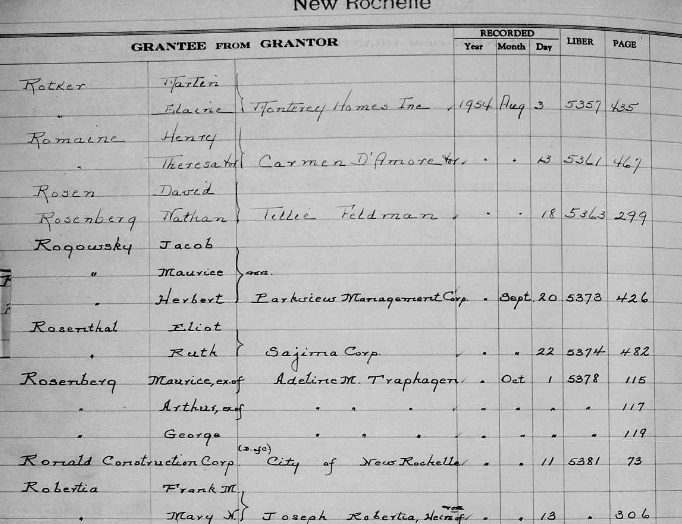 New Rochelle
RECORDED
GRANTEE FROM GRANTOR Year Month Day LIBER PAGE
Rotker Martin
" Elaine Monterey Homes Inc 1954 Aug 3 5357 435
Romaine Henry
" Theresa Carmen D'Amore " " 13 5361 467
Rosen David
Rosenberg Nathan Tillie Feldman " " 18 5363 299
Rogowsky Jacob
" Maurice
" Herbert Management Corp. " Sept. 20 5373 426
Rosenthal Eliot
" Ruth Sajima Corp. " " 22 5374 482
Rosenberg Maurice, ex of Adeline M. Traphagen " Oct 1 5378 115
" Arthur, ex of " " " " " " " 117
" George " " " " " " " 119
Ronald Construction Corp. City of New Rochelle " " 11 5381 73
Robertia Frank M.
" Mary N. Joseph Robertia, Heirs of " " 13 " 306